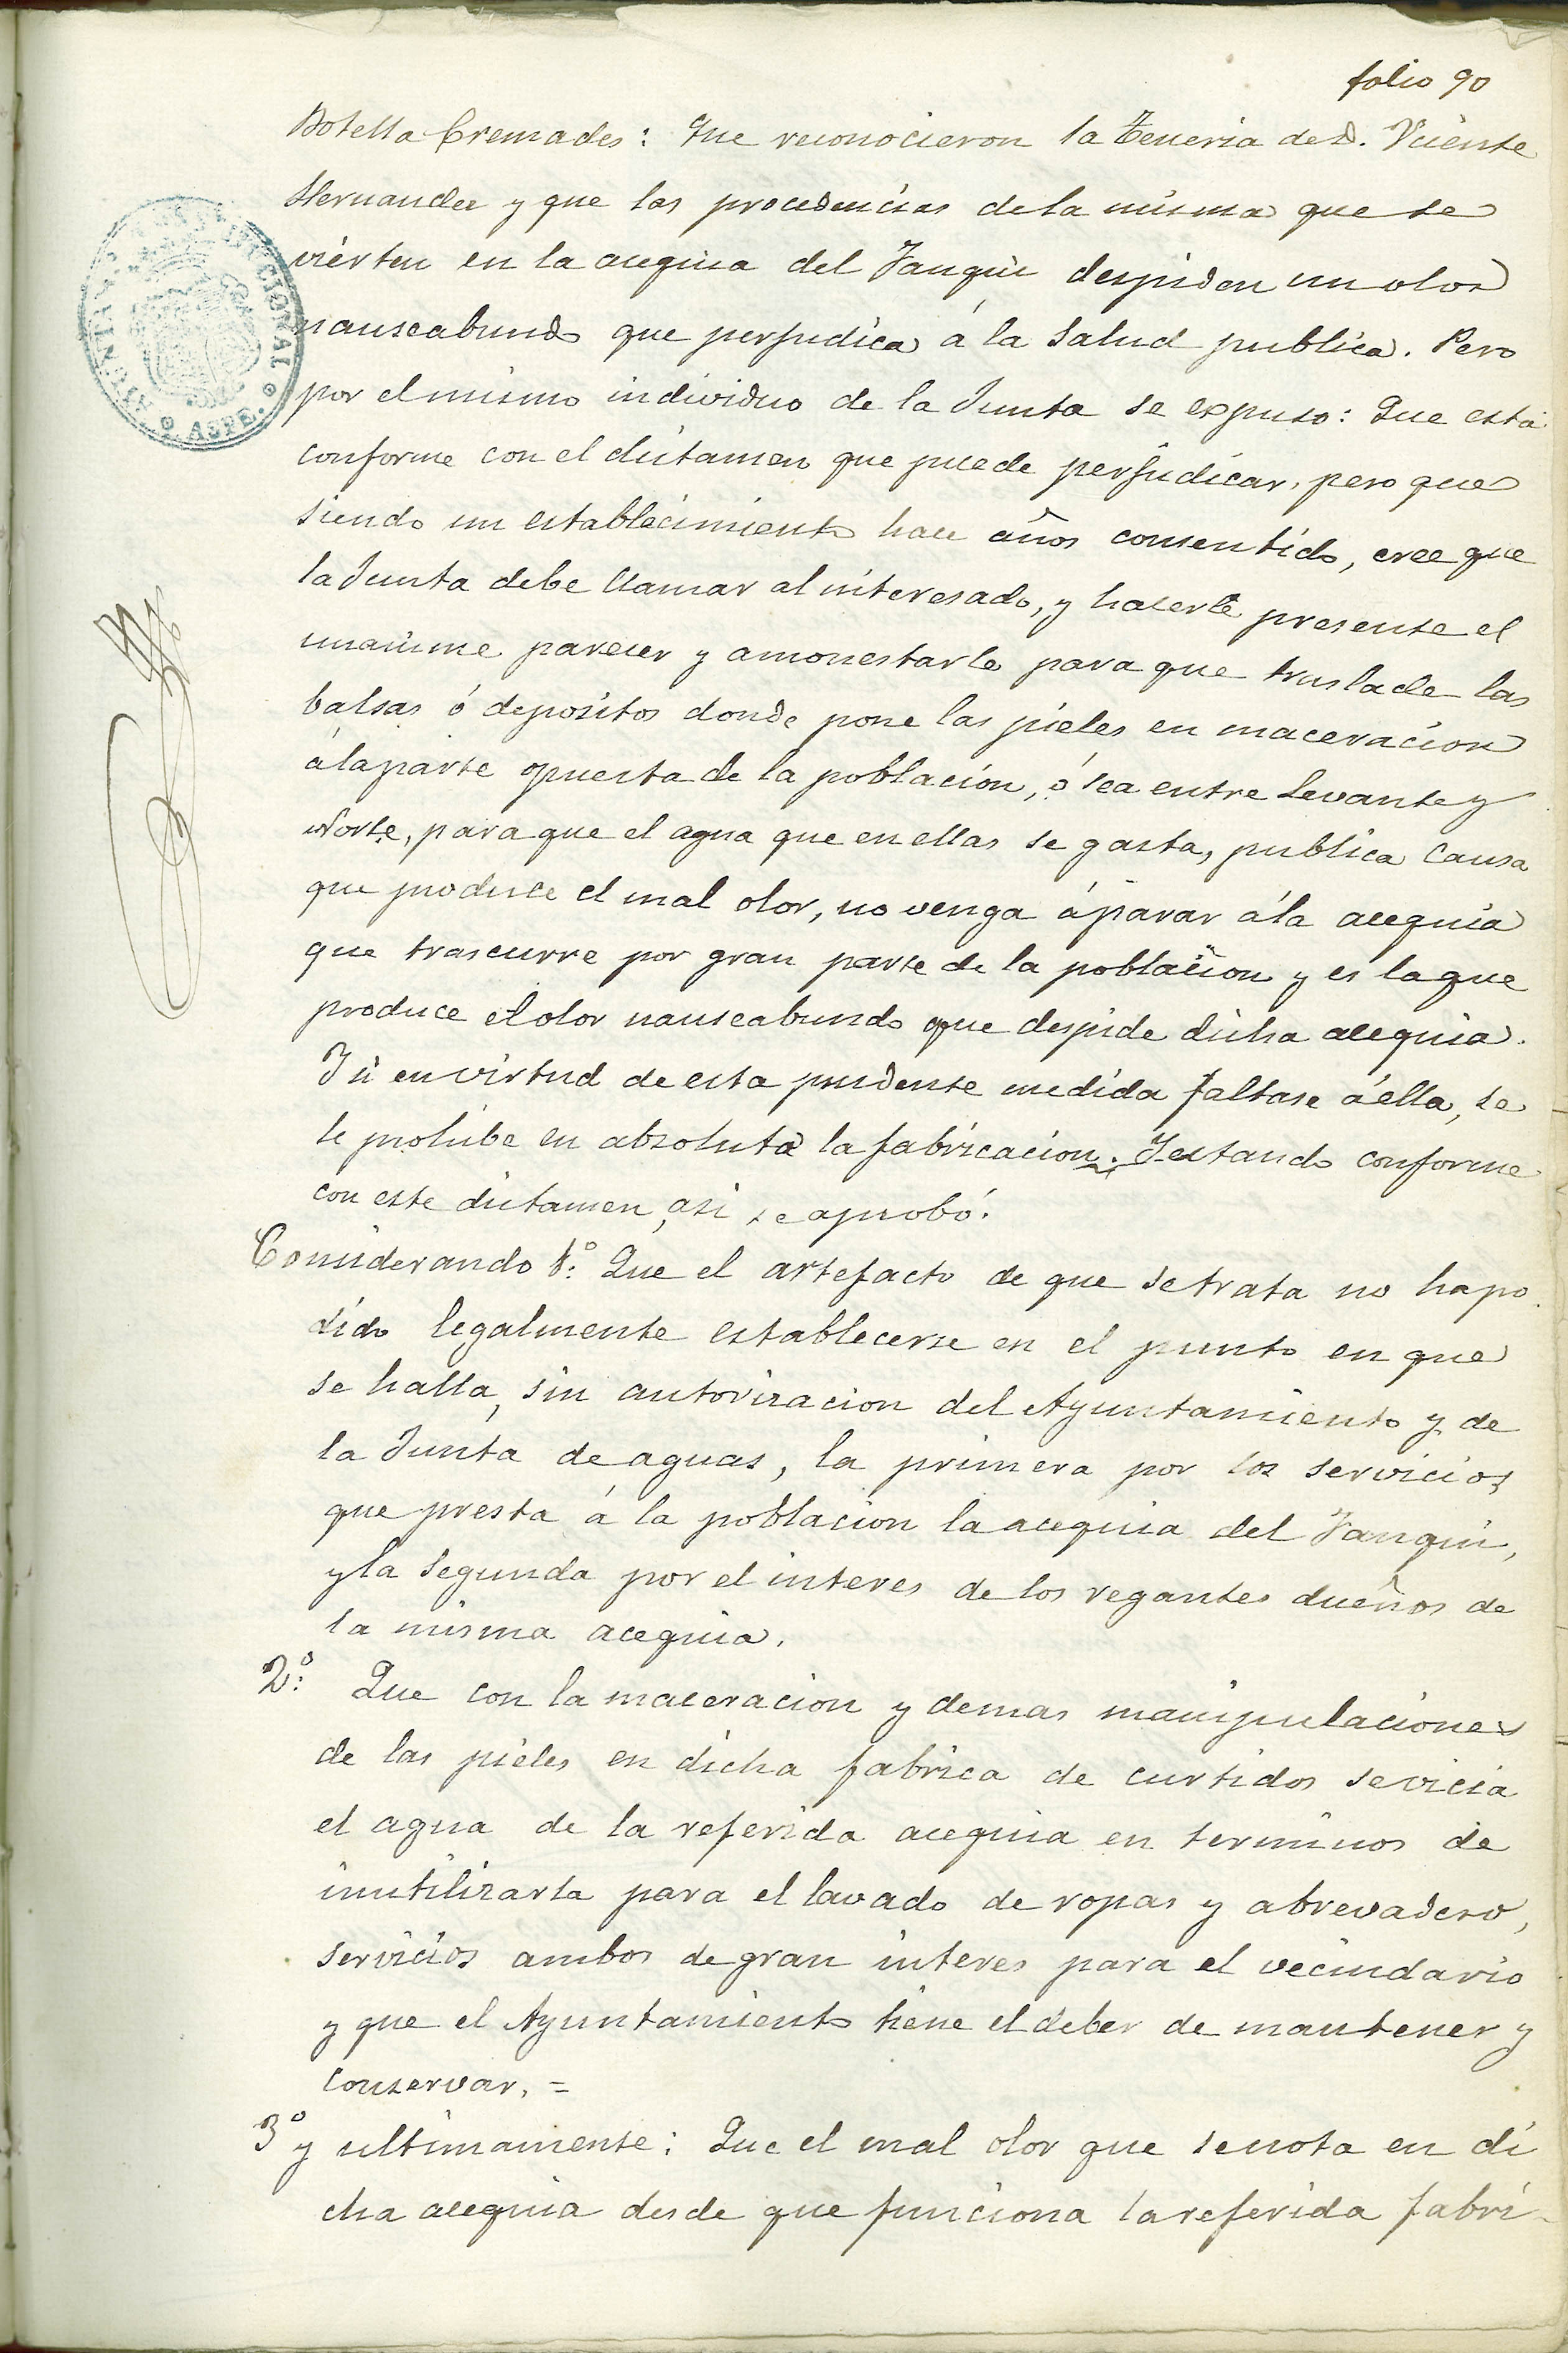 folio 90
Botella Cremades: Que reconocieron la Teneria de D. Vicente
Hernandez y que las procedencias de la misma que se
vierten en la acequia del Fauqui despiden un olor
nauseabundo que perjudica á la salud publica. Pero
por el mismo individuo de la Junta se expuso: Que está
conforme con el dictamen que puede perjudicar, pero que
siendo un establecimiento hace años consentido, cree que
la Junta debe llamar al interesado, y hacerle presente el
unanime parecer y amonestarle para que traslade las
balsas ó depositos donde pone las pieles en maceracion
á la parte opuesta de la poblacion, ó sea entre Levante y
Norte, para que el agua que en ellas se gasta, publica causa
que produce el mal olor, no venga á parar á la acequia
que trascurre por gran parte de la poblacion y es la que
produce el olor nauseabundo que despide dicha acequia.
Y si en virtud de esta prudente medida faltase á ella, se
le prohibe en absoluta la fabricacion. Y estando conforme
con este dictamen, asi se aprobó.
Considerando 1.º: Que el artefacto de que se trata no ha po
dido legalmente establecerse en el punto en que
se halla, sin autorizacion del Ayuntamiento y de
la Junta de aguas, la primera por los servicios
que presta á la poblacion la acequia del Fauqui,
y la segunda por el interes de los regantes dueños de
la misma acequia.
2.º: Que con la maceracion y demas manipulaciones
de las pieles en dicha fabrica de curtidos se vicia
el agua de la referida acequia en terminos de
inutilizarla para el lavado de ropas y abrevadero,
servicios ambos de gran interes para el vecindario
y que el Ayuntamiento tiene el deber de mantener y
conservar. =
3º y ultimamente: Que el mal olor que se nota en di
cha acequia desde que funciona la referida fabri-
CIONAL
ASPE.